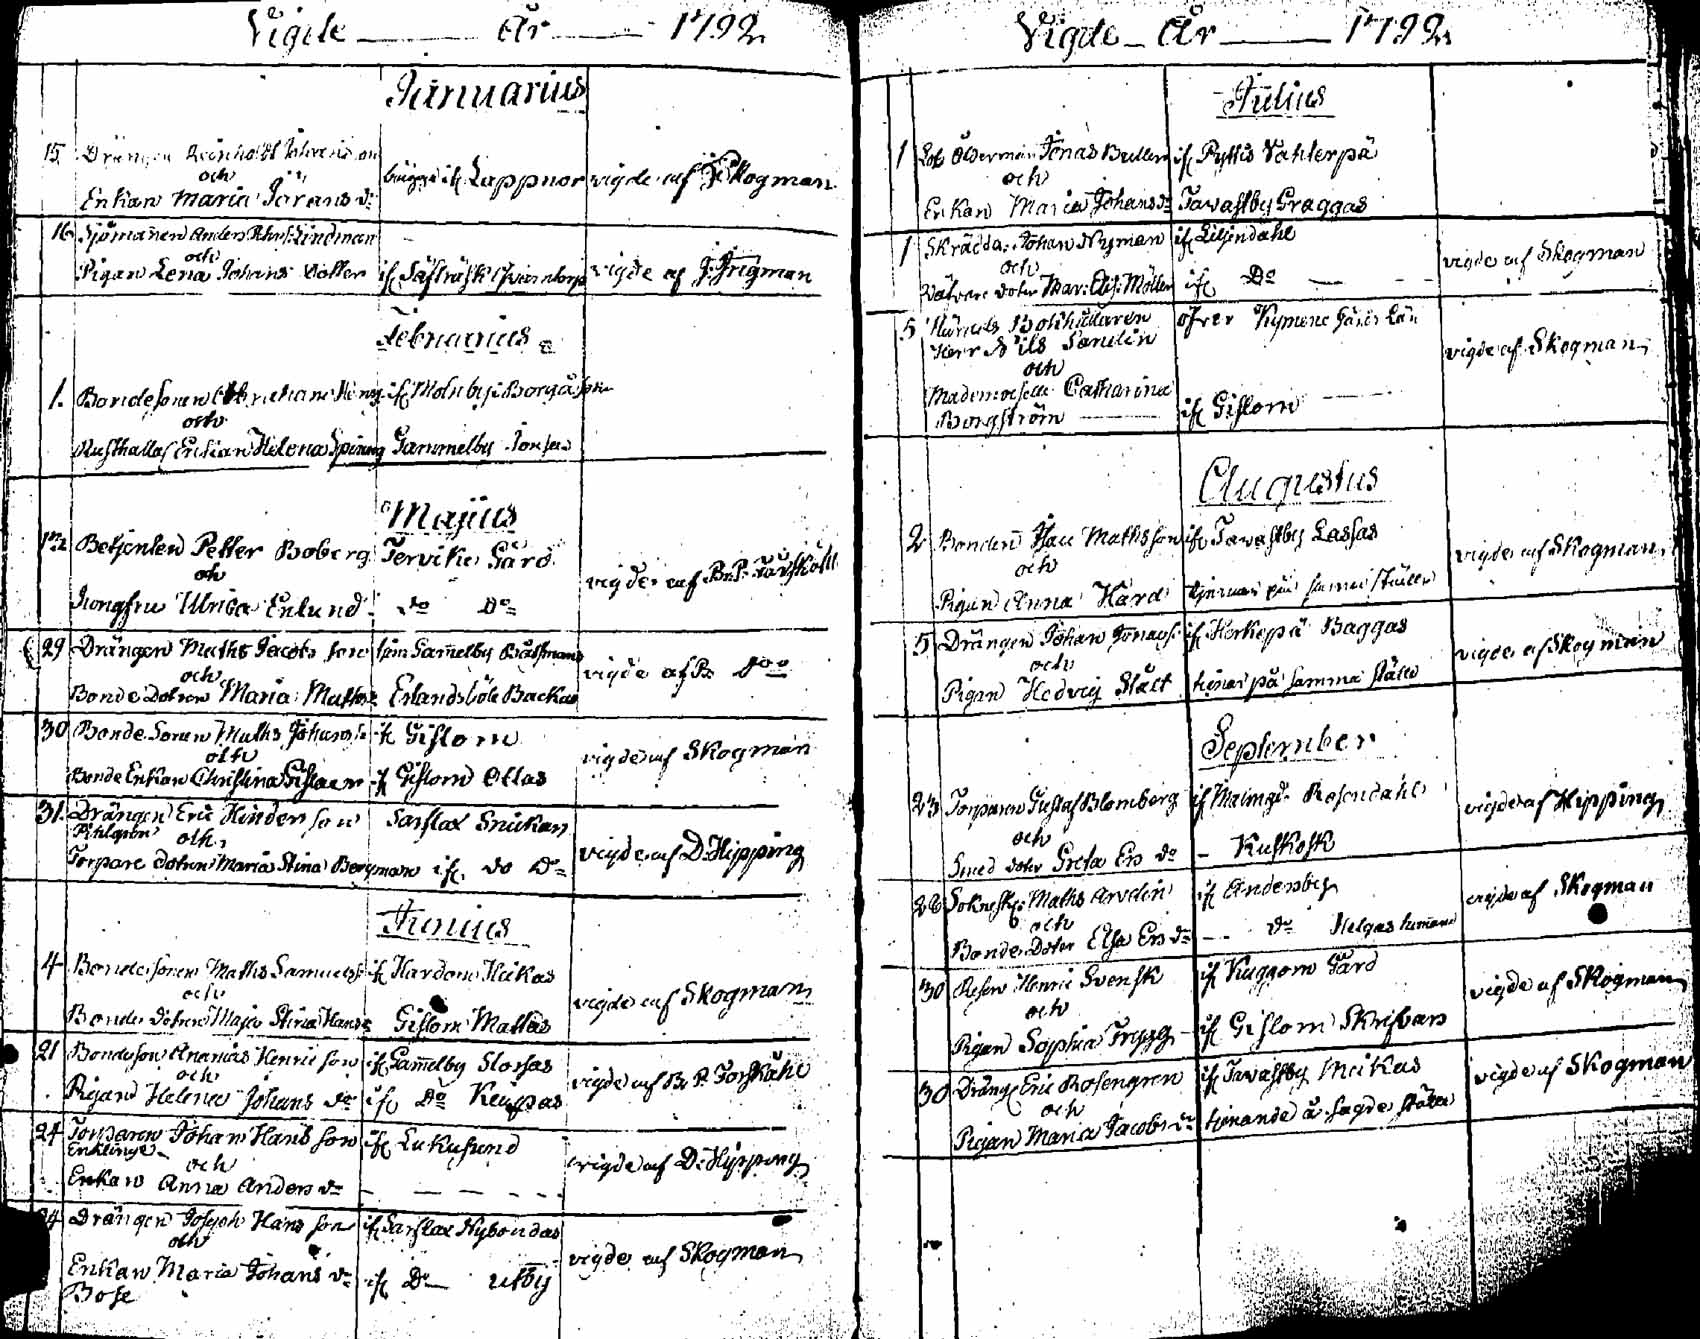 Vigde År 1792
Januarius
15. Drängen Reinholdt
och
Enkan Maria Jörans dr
if Lappnor
vigde af Skogman
16 Sjömannen Anders Lindman
och
Pigan Lena Johans dotter
if
vigde af
Februarius
1. Bondesonen
och
Enkan Helena
if Borgå
Gammelby
Majus
Betjenten Petter Boberg
och
Jongfru Ulrica Enlund
Tervike Gård
do Do
vigde af
29 Drängen Maths Jacobs son
och
Bonde Dotren Maria Maths
Gamelby
Erlandsböle Backas
vigde af Do
30 Bonde Sonen Maths Johans
och
Bonde Enkan Christina Gislom
if Gislom
if Gislom Ollas
vigde af Skogman
31. Drängen Eric Hindersson
och
Torpare dotren Maria Stina Bergman
Sarflax Snickars
if do Do
vigde af D. Hipping
Junius
4 Bondesonen Maths Samuels
och
Bonde dotren Maja Stina Hans
if Hardom Heikas
Gislom Mattas
vigde af Skogman
21 Bondeson Ananias Henricson
och
Pigan Helena Johans dr
if Gamelby Storsas
if Do
vigde af
24 Torparen Johan Hansson
Enklinge
och
Enkan Anna Anders dr
if Lukusund
vigde af D. Hipping
24 Drängen Joseph Hansson
och
Enkan Maria Johans dr
Bose
if Sarflax Nybondas
if Do utby
vigde af Skogman
Vigde År 1792
Julius
1 Lots Ålderman Jonas Buller
och
Enkan Maria Johans dr
if Pyttis Vahterpä
Tavastby Graggas
1 Skrädda: Johan Nyman
och
Mar: Möller
if Liljendahl
if Do
vigde af Skogman
5 Bokhållaren
Herr Nils Sandin
och
Mademoiselle Catharina
Borgström
öfver Kymene Gårds Län
if Gislom
vigde af Skogman
Augustus
2 Bonden Isac Mathsson
och
Pigan Anna Hård
if Tavastby Lassas
tjenar på samma ställe
vigde af Skogman
5 Drängen Johan Jonas
och
Pigan Hedvig Stålt
if Horkopä Baggas
tienar på samma ställe
vigde af Skogman
September
23 Torparen Gustaf Blomberg
och
Smed doter Greta Ers dr
if Malmgd Rosendahl
Kuskosk
vigde af Hipping
Maths Arvelin
och
Bonde Doter Elsa Ers dr
if Andersby
do Helgas
vigde af Skogman
30 Henric Svensk
och
Pigan Sophia Trygg
if Kuggom Gård
if Gislom Skrifvars
vigde af Skogman
30 Dräng Eric Rosengren
och
Pigan Maria Jacobs dr
if Tavastby Meikas
tjenande å sagde ställe
vigde af Skogman